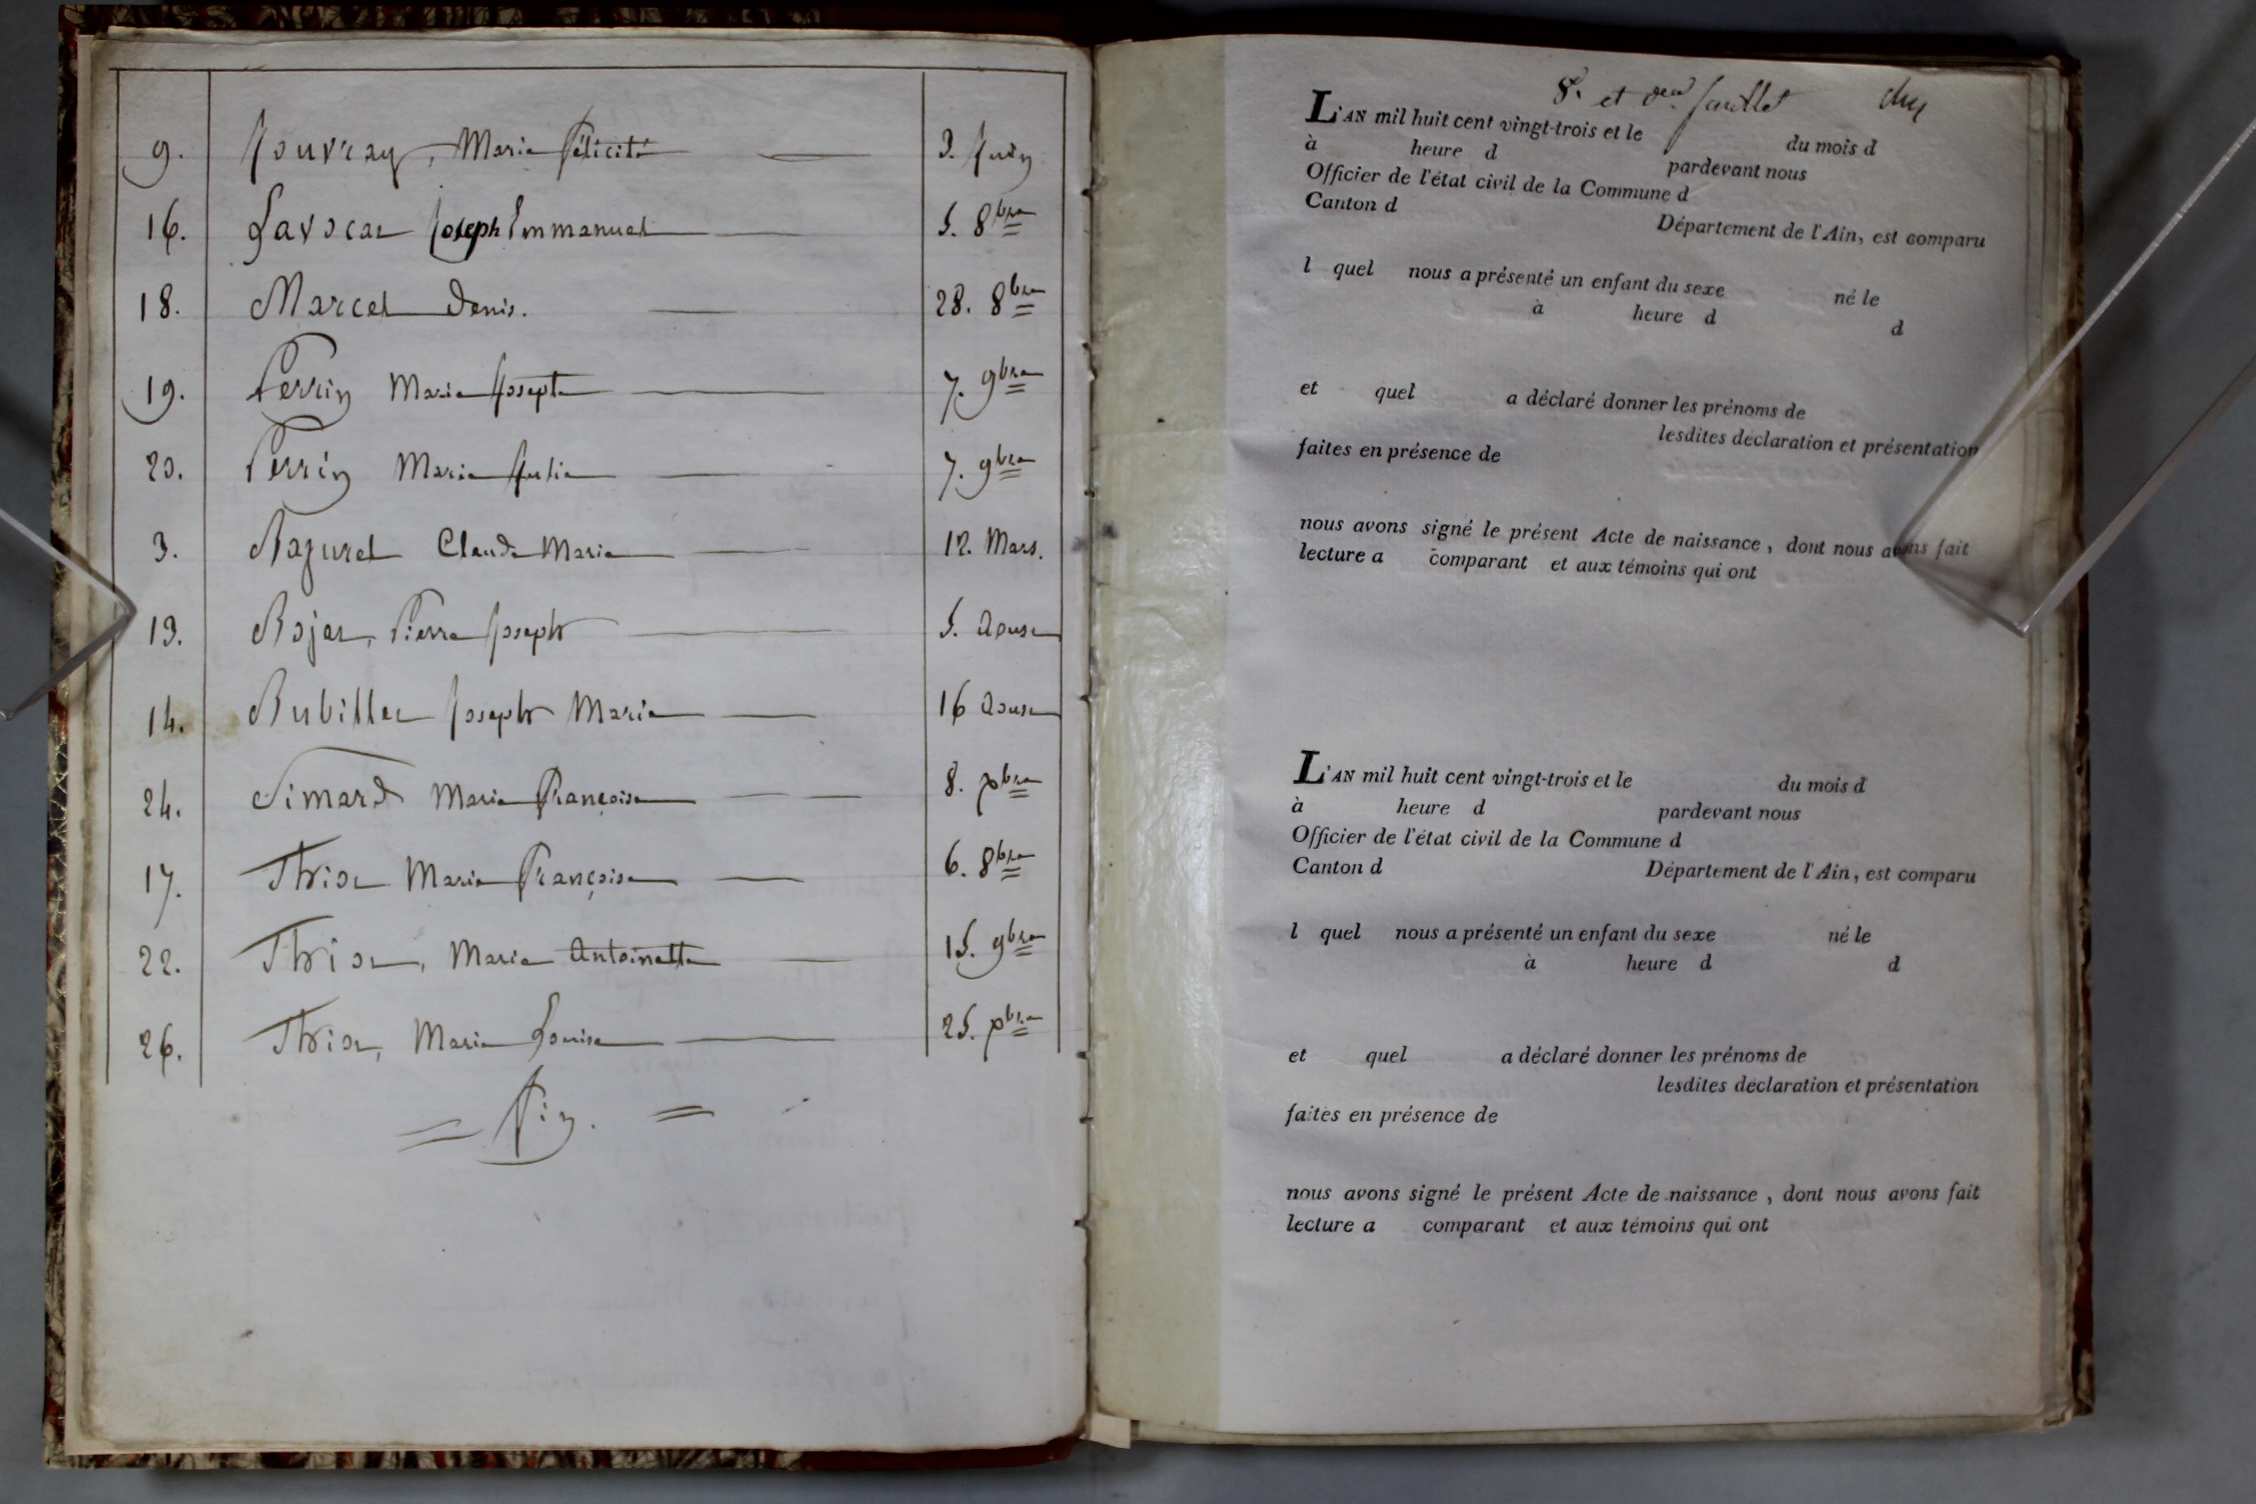 9. Jouvray, Marie Félicité — 3. Juin
16. Lavocat Joseph Emmanuel — 5. 8bre
18. Marcel denis. — 28. 8bre
19. Perrin Marie Josepte — 7. 9bre
20. Perrin Marie Julie — 7. 9bre
3. Claude Marie — 12. Mars.
13. Pierre Joseph — 5. Aoust
14. Joseph Marie — 16 Aoust
24. Simard Marie Françoise — 8. xbre
17. Marie Françoise — 6. 8bre
22. Marie Antoinette — 15. 9bre
26. Marie Louise — 25. xbre
= Fin. =
8. et feuillet
L'AN mil huit cent vingt-trois et le du mois d
à heure d pardevant nous
Officier de l'état civil de la Commune d
Canton d Département de l'Ain, est comparu
l quel nous a présenté un enfant du sexe né le
à heure d d
et quel a déclaré donner les prénoms de
lesdites déclaration et présentation
faites en présence de
nous avons signé le présent Acte de naissance, dont nous avons fait
lecture a comparant et aux témoins qui ont
L'AN mil huit cent vingt-trois et le du mois d
à heure d pardevant nous
Officier de l'état civil de la Commune d
Canton d Département de l'Ain, est comparu
l quel nous a présenté un enfant du sexe né le
à heure d d
et quel a déclaré donner les prénoms de
lesdites déclaration et présentation
faites en présence de
nous avons signé le présent Acte de naissance, dont nous avons fait
lecture a comparant et aux témoins qui ont